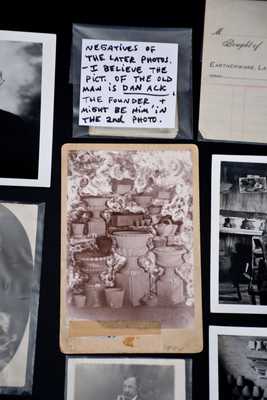 NEGATIVES OF
THE LATER PHOTOS.
- I BELIEVE THE
PICT. OF THE OLD
MAN IS DAN ACK
THE FOUNDER +
MIGHT BE HIM IN
THE 2nd PHOTO.
M
Bought of
EARTHENWARE, LA